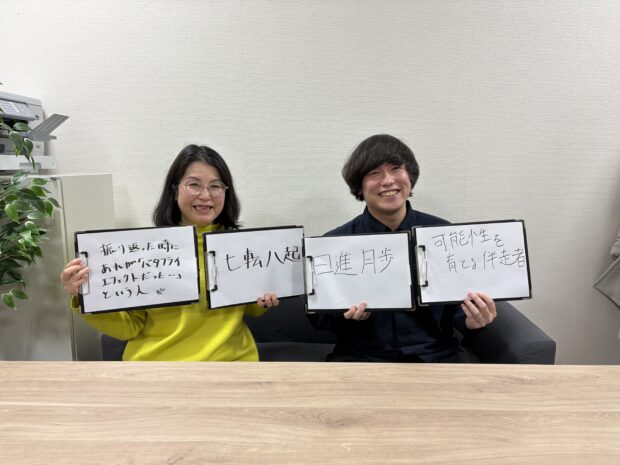 振り返った時に
あれがバタフライ
エフェクトだった…」
という人
七転八起
日進月歩
可能性を
育てる伴走者